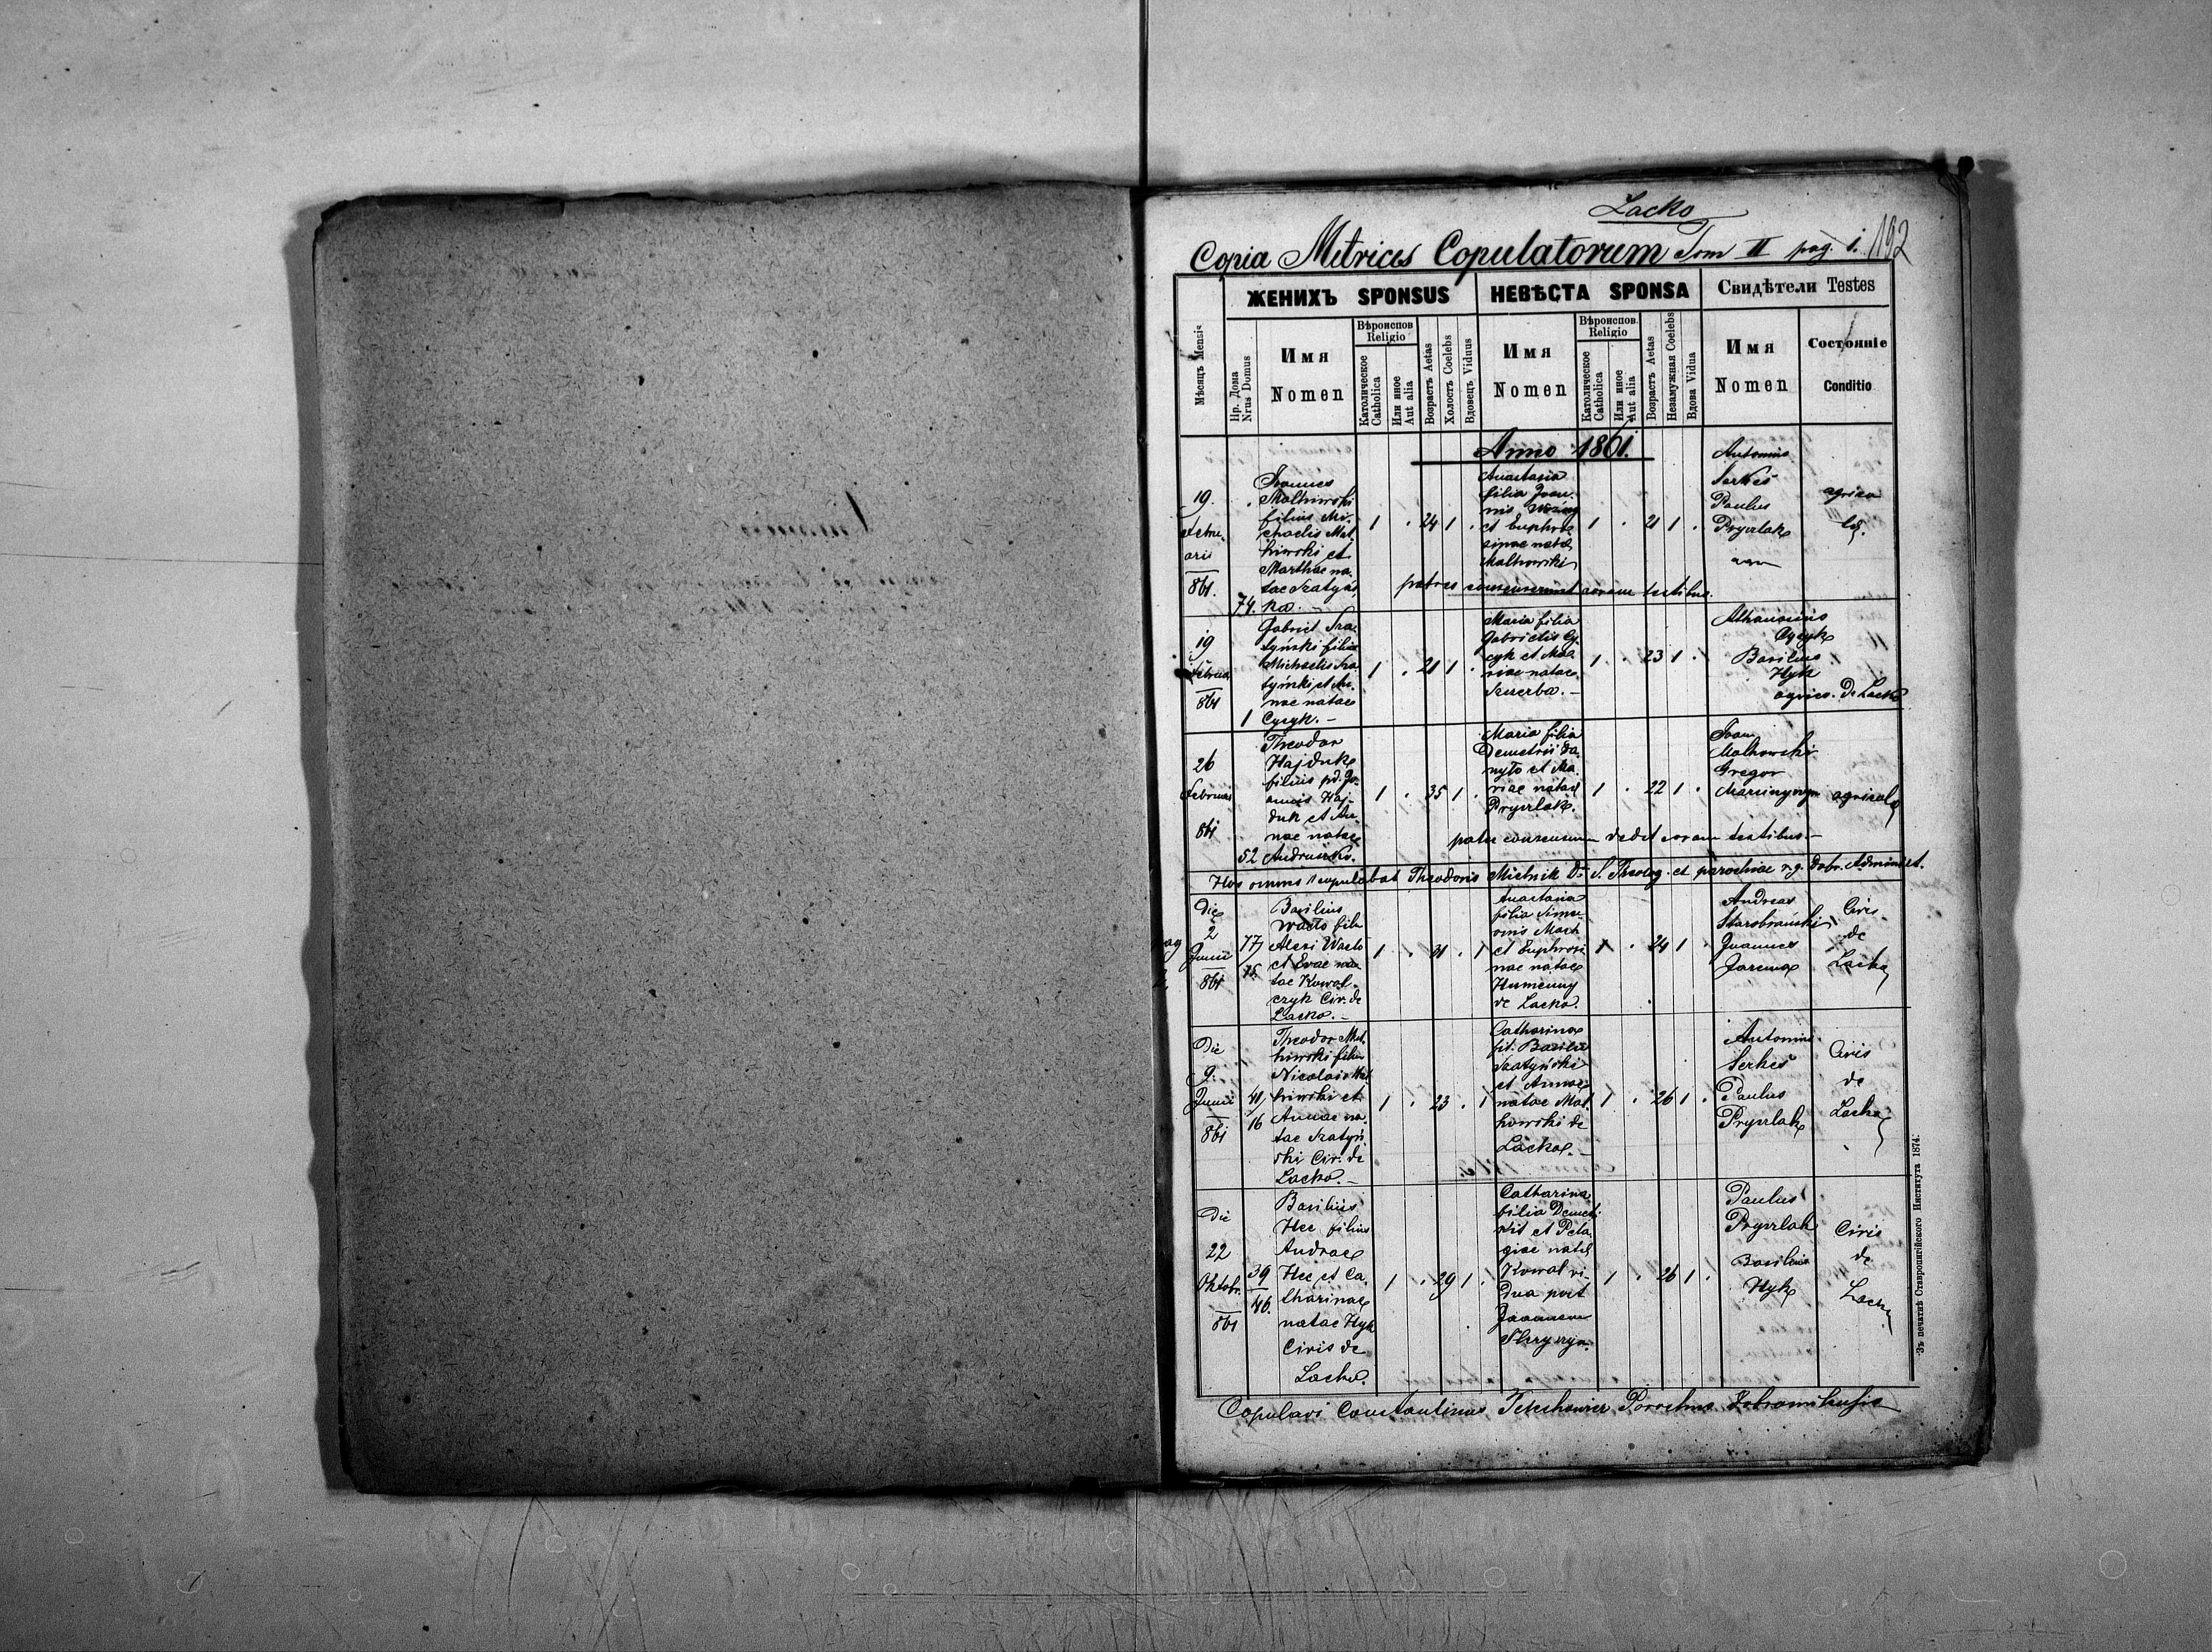 Lacko
Copia Metrices Copulatorum Tom II pag. 1. 192
ЖЕНИХЪ SPONSUS
НЕВѢСТА SPONSA
Свидѣтели Testes
Мѣсяць Mensis
Нр. Дома
Nrus Domus
Имя
Nomen
Вѣроиспов
Religio
Католическое
Catholica
Или иное
Aut alia
Возрастъ Aetas
Холостъ Coelebs
Вдовецъ Viduus
Имя
Nomen
Вѣроиспов.
Religio
Католическое
Catholica
Или иное
Aut alia
Возрастъ Aetas
Незамужная Coelebs
Вдова Vidua
Имя
Nomen
Состояніе
Conditio
Anno 1861.
19.
861.
74.
Joannes
Malhiwski
filius Mi-
chaelis Mal-
hiwski et
Marthae na-
tae
1 . 24 1 .
Anastasia
filia Joan-
nis
et Euphro-
sinae natae
Malhowski
1 . 21 1 .
Antonius
Serkes
Paulus
Pryvrlak
agrico
lae.
19
861
1
Gabriel
filius
Michaelis
et An-
nae natae
Cycyk. -
1 . 21 1 .
Maria filia
Gabrielis Cy-
cyk et Ma-
riae natae
Szczerba. -
1 . 23 1 .
Athanasius
Cycyk
Basilius
Hyk
agric. de Lacko
26
Februar
861
52
Theodor
Hajduk
filius pd. Jo-
annis Haj-
duk et An-
nae natae
1 . 35 1 .
Maria filia
Demetrii Da-
nyło et Ma-
riae natae
Pryvrlak.
1 . 22 1 .
Joan
Malhowski
Gregor
agricolae
pater consensum dedit coram testibus. -
Hos omnes copulabat Theodoris Mielnik D. S. Theolog. et parochiae r. g. Dobr. Administ.
Die
2
Junii
861
77
75
Basilius
Wacło filii
Alexi Wacło
et Evae na-
tae Kowal-
czyk Civ. de
Lacko. -
1 . 31 . 1
Anastasia
filia Sime-
onis Mach
et Euphrosi
nae natae
Humenny
de Lacko.
1 . 24 1 .
Andreas
Joannes
Jarema
Civis
de
Lacko
Die
9.
Junii
861
41
16
Theodor Mal-
hiwski filius
Nicolai Mal
hiwski et
Annae na-
tae Szatyń
ski Civ. de
Lacko. -
1 . 23 . 1
Catharina
fil. Basilii
Szatyński
et Annae
natae Mal-
howski de
Lacko. -
1 . 26 1 .
Antonius
Serkes
Paulus
Pryvrlak
Civis
de
Lacko
Die
22
Oktobr.
861
39
46.
Basilius
Hec filius
Andreae
Hec et Ca-
tharinae
natae Hyk
Civis de
Lacko.
1 . 29 1 .
Catharina
filia Demet-
et Pela-
giae natae
Kowal vi-
dua post
Joannem
1 . 26 1 .
Paulus
Pryvrlak
Basilius
Hyk
Civis
de
Lacko
Copulavi Constantinus Parochus Dobromilensis
Зъ печатнѣ Ставропигійского Института 1874.